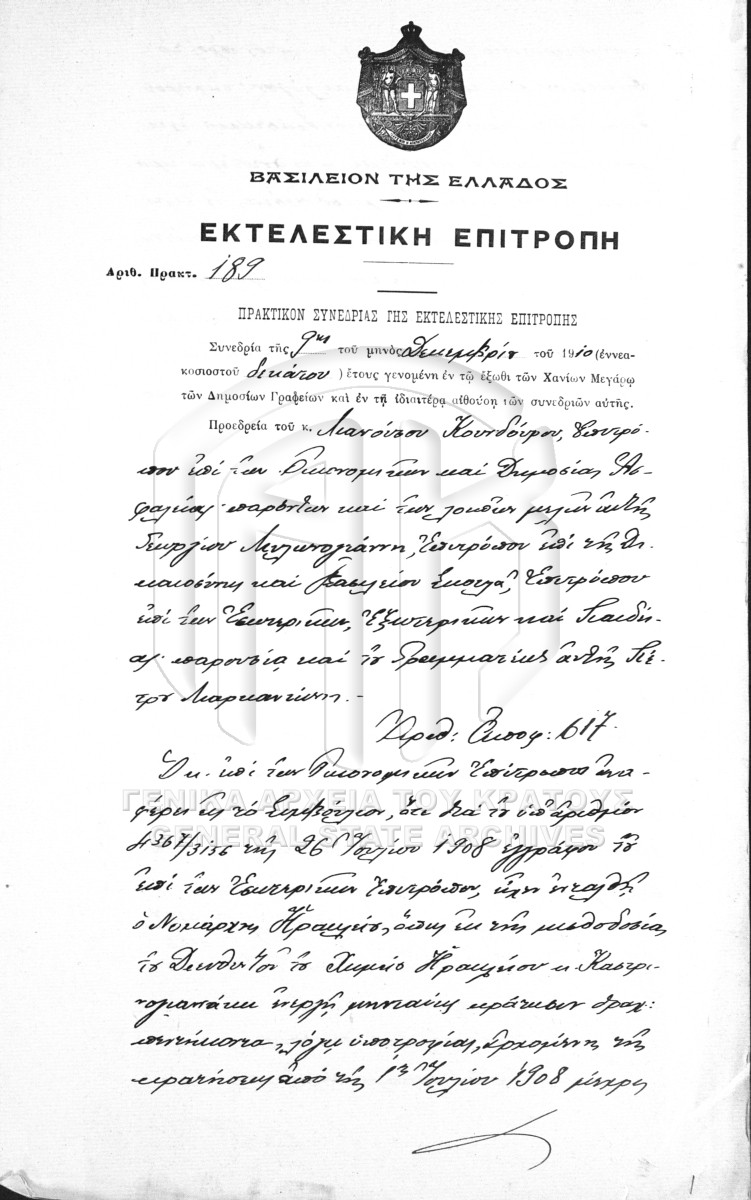 ΒΑΣΙΛΕΙΟΝ ΤΗΣ ΕΛΛΑΔΟΣ
ΕΚΤΕΛΕΣΤΙΚΗ ΕΠΙΤΡΟΠΗ
Αριθ. Πρακτ. 189
ΠΡΑΚΤΙΚΟΝ ΣΥΝΕΔΡΙΑΣ ΤΗΣ ΕΚΤΕΛΕΣΤΙΚΗΣ ΕΠΙΤΡΟΠΗΣ
Συνεδρία τῆς 9ης τοῦ μηνὸς Δεκεμβρίου τοῦ 1910 (ἐννεα-
κοσιοστοῦ δεκάτου) ἔτους γενομένη ἐν τῷ ἔξωθι τῶν Χανίων Μεγάρῳ
τῶν Δημοσίων Γραφείων καὶ ἐν τῇ ἰδιαιτέρᾳ αἰθούσῃ τῶν συνεδριῶν αὐτῆς.
Προεδρεία τοῦ κ. Μανούσου Κουνδούρου, Ἐπιτρό-
που ἐπὶ τῶν Οἰκονομικῶν καὶ Δημοσίας Ἀσ-
φαλείας παρόντων καὶ τῶν λοιπῶν μελῶν αὐτῆς
Γεωργίου Μυλωνογιάννη, Ἐπιτρόπου ἐπὶ τῆς Δι-
καιοσύνης καὶ Βασιλείου Σκουλᾶ, Ἐπιτρόπου
ἐπὶ τῶν Ἐσωτερικῶν, Ἐξωτερικῶν καὶ Παιδεί-
ας παρουσίᾳ καὶ τοῦ Γραμματέως αὐτῆς Πέ-
τρου Μαρκαντώνη.-
Ἀριθ: Ἀποφ: 617.
Ὁ κ. ἐπὶ τῶν Οἰκονομικῶν Ἐπίτροπος ἀνα-
φέρει εἰς τὸ Συμβούλιον, ὅτι διὰ τοῦ ὑπ' ἀριθμὸν
4367/3136 τῆς 26 Ἰουλίου 1908 ἐγγράφου τοῦ
ἐπὶ τῶν Ἐσωτερικῶν Ἐπιτρόπου, εἶχεν ἐνταλθῆ
ὁ Νομάρχης Ἡρακλείου, ὅπως ἐκ τῆς μισθοδοσίας
τοῦ Διευθυντοῦ τοῦ Χημείου Ἡρακλείου κ. Καστρι-
νογιαννάκη ἐνεργῇ μηνιαίως κράτησιν δραχ:
πεντήκοντα, λόγῳ ὑποτροφίας, ἀρχομένης τῆς
κρατήσεως ἀπὸ τῆς 1ης Ἰουλίου 1908 μέχρις
1
ΓΕΝΙΚΑ ΑΡΧΕΙΑ ΤΟΥ ΚΡΑΤΟΥΣ
GENERAL STATE ARCHIVES